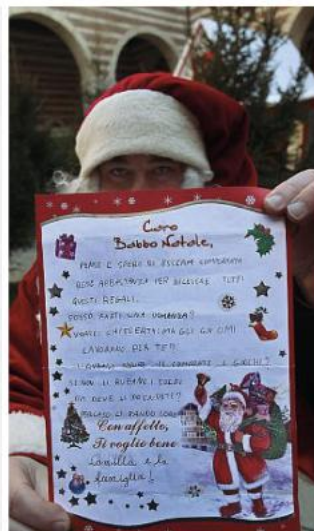 Caro
Babbo Natale,
PENSO E SPERO DI ESSERMI COMPORTATA
BENE ABBASTANZA PER RICEVERE TUTTI
QUESTI REGALI.
POSSO FARTI UNA DOMANDA?
VORREI CHIEDERTI MA GLI GNOMI
LAVORANO PER TE?
I GIOCHI?
SE NON LI RUBANO I SOLDI
DA DOVE LI PRENDETE?
Con affetto,
Ti voglio bene
Camilla e la
famiglia!